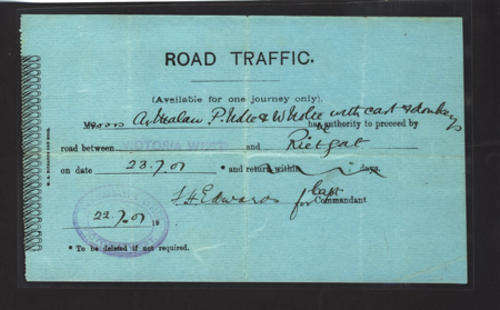 ROAD TRAFFIC.
(Available for one journey only).
P. Nolee & W Nolee with cart & donkeys
has authority to proceed by
road between VICTORIA WEST and Rietgat
on date 23.7.01 * and return within days.
Edwards Capt
for Commandant
22.7.01 19
* To be deleted if not required.